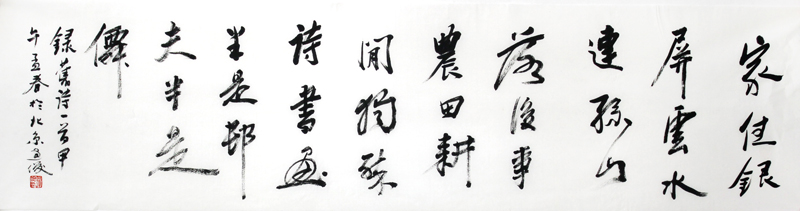 家住銀
屏雲水
連孫山
落後事
農田耕
閒獨醉
詩書畫
半是邨
夫半是
僊
録舊詩一首甲
午孟春於北京